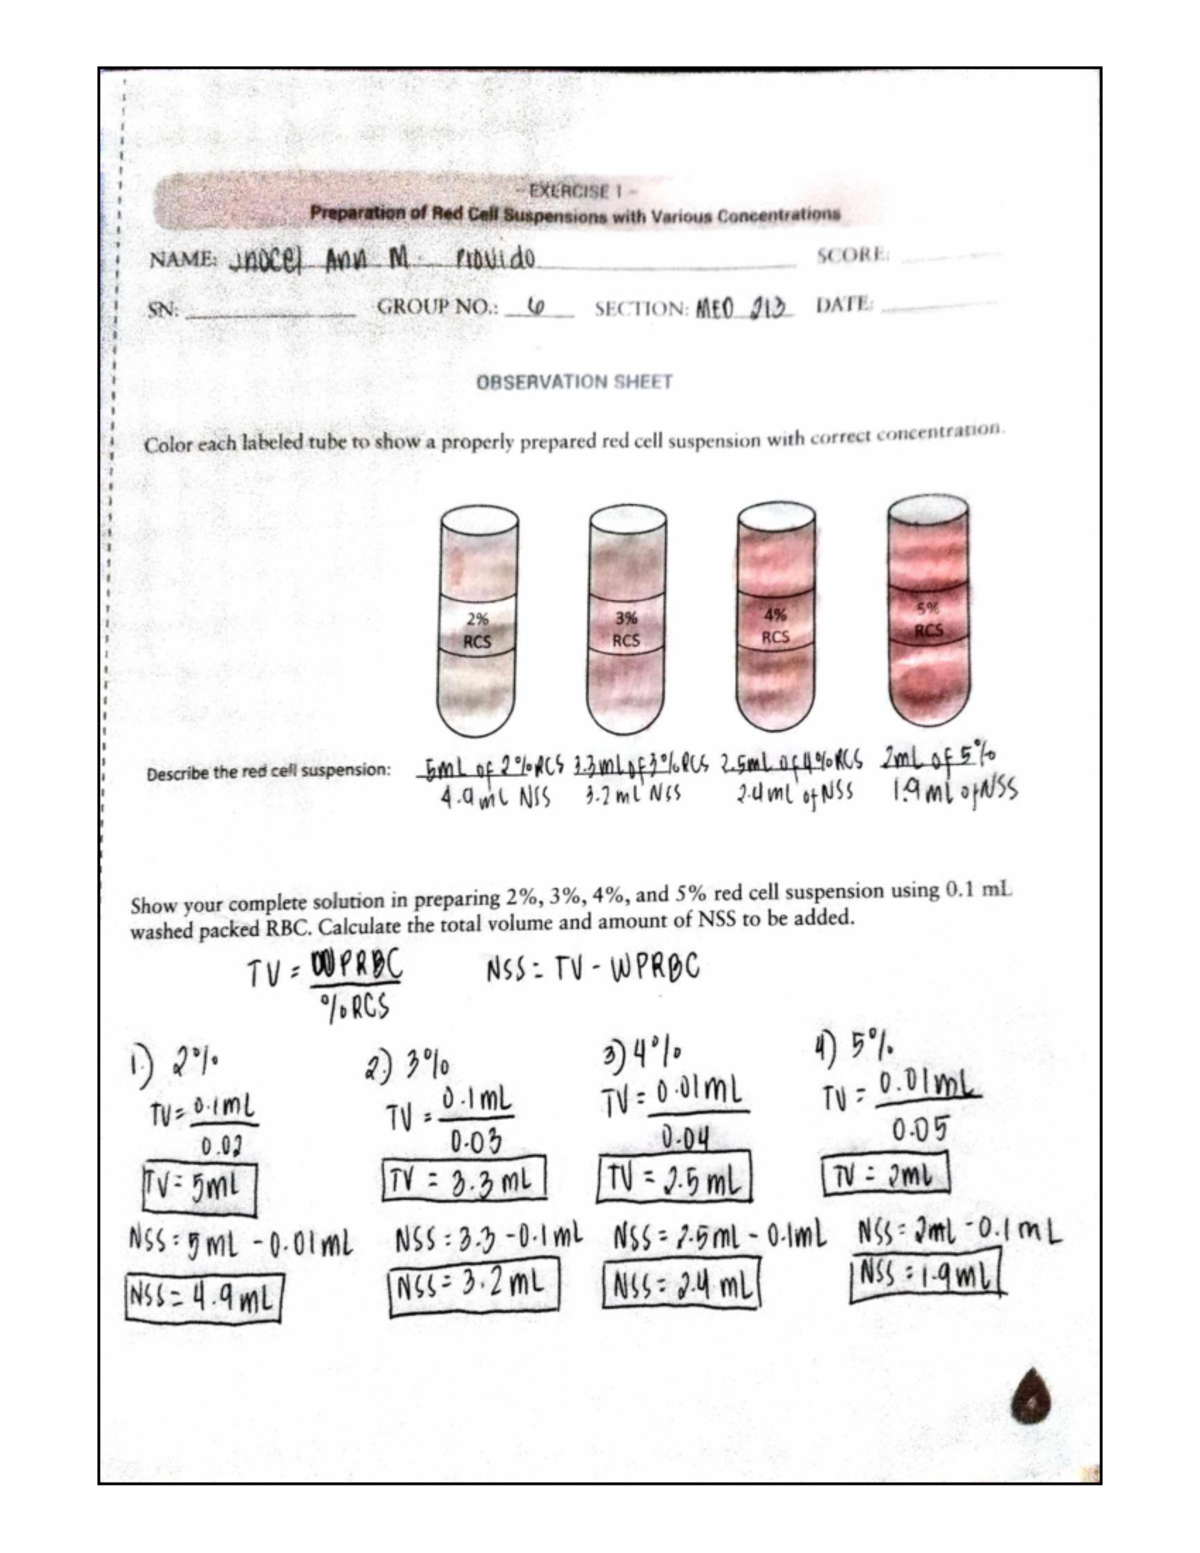 - EXERCISE 1 -
Preparation of Red Cell Suspensions with Various Concentrations
NAME: Jnocel Ann M. Providо SCORE:
SN: GROUP NO.: 6 SECTION: MEO 213 DATE:
OBSERVATION SHEET
Color each labeled tube to show a properly prepared red cell suspension with correct concentration.
2% 3% 4% 5%
RCS RCS RCS RCS
Describe the red cell suspension: 5mL of 2% RCS 3.3mL of 3% RCS 2.5mL of 4% RCS 2mL of 5%
4.9 mL NSS 3.2 mL NSS 2.4 mL of NSS 1.9 mL of NSS
Show your complete solution in preparing 2%, 3%, 4%, and 5% red cell suspension using 0.1 mL
washed packed RBC. Calculate the total volume and amount of NSS to be added.
TV = WPRBC NSS = TV - WPRBC
%RCS
1.) 2% 2.) 3% 3) 4% 4) 5%
TV = 0.1mL TV = 0.1mL TV = 0.01mL TV = 0.01mL
0.02 0.03 0.04 0.05
TV = 5mL TV = 3.3 mL TV = 2.5 mL TV = 2mL
NSS = 5mL - 0.01mL NSS = 3.3 - 0.1mL NSS = 2.5mL - 0.1mL NSS = 2mL - 0.1mL
NSS = 4.9mL NSS = 3.2mL NSS = 2.4 mL NSS = 1.9mL